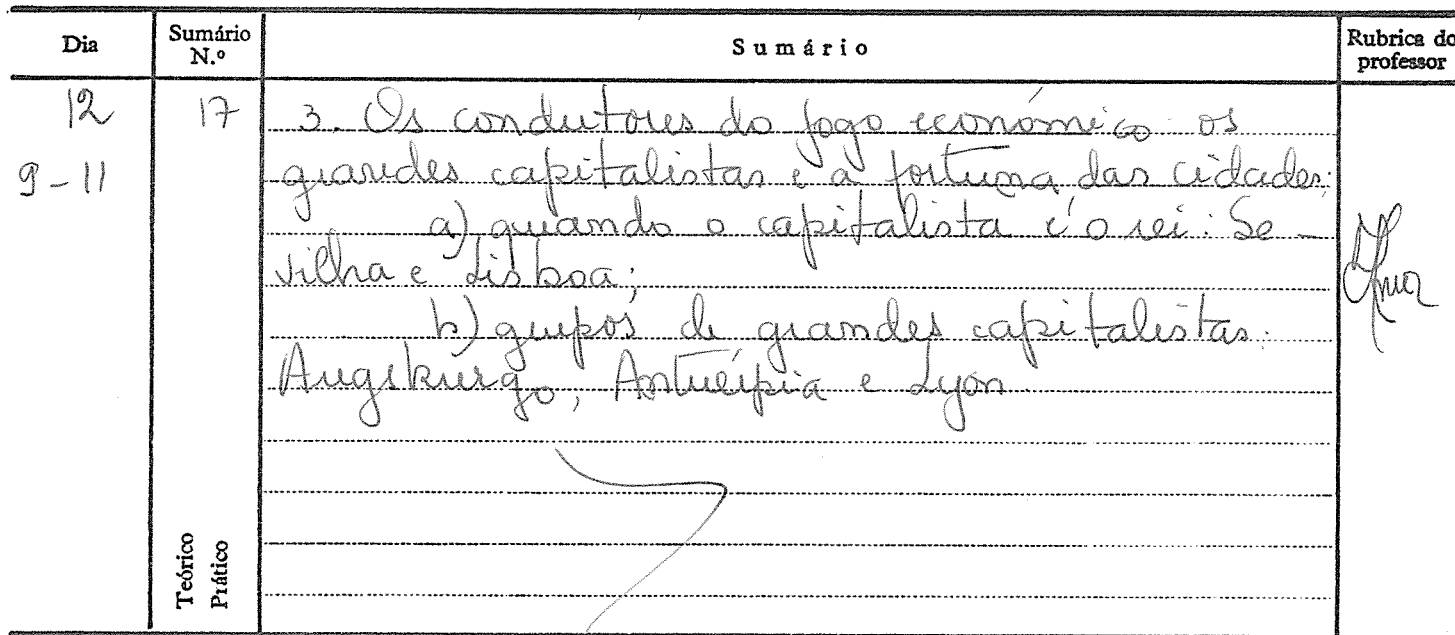 Dia
Sumário
N.º
Sumário
Rubrica do
professor
12
17
9-11
3. Os condutores do jogo económico os
grandes capitalistas e a fortuna das cidades:
a) quando o capitalista é o rei: Se-
vilha e Lisboa;
b) grupos de grandes capitalistas:
Augsburgo, Antuérpia e Lyon
Teórico
Prático